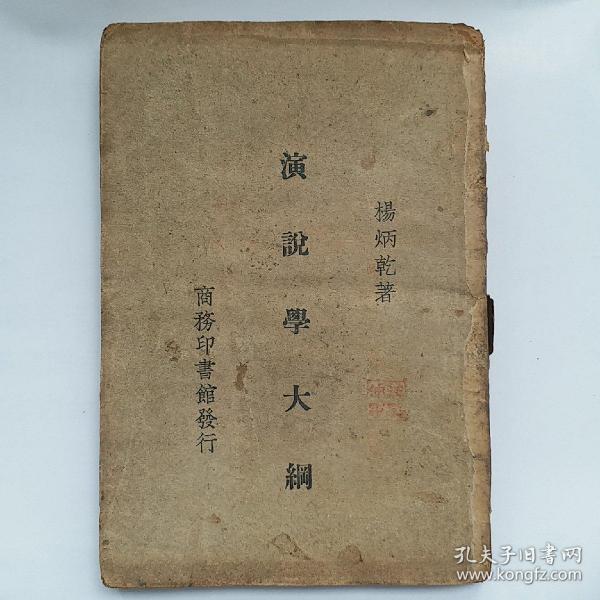 楊炳乾著
演說學大綱
商務印書館發行
孔夫子旧书网
www.kongfz.com